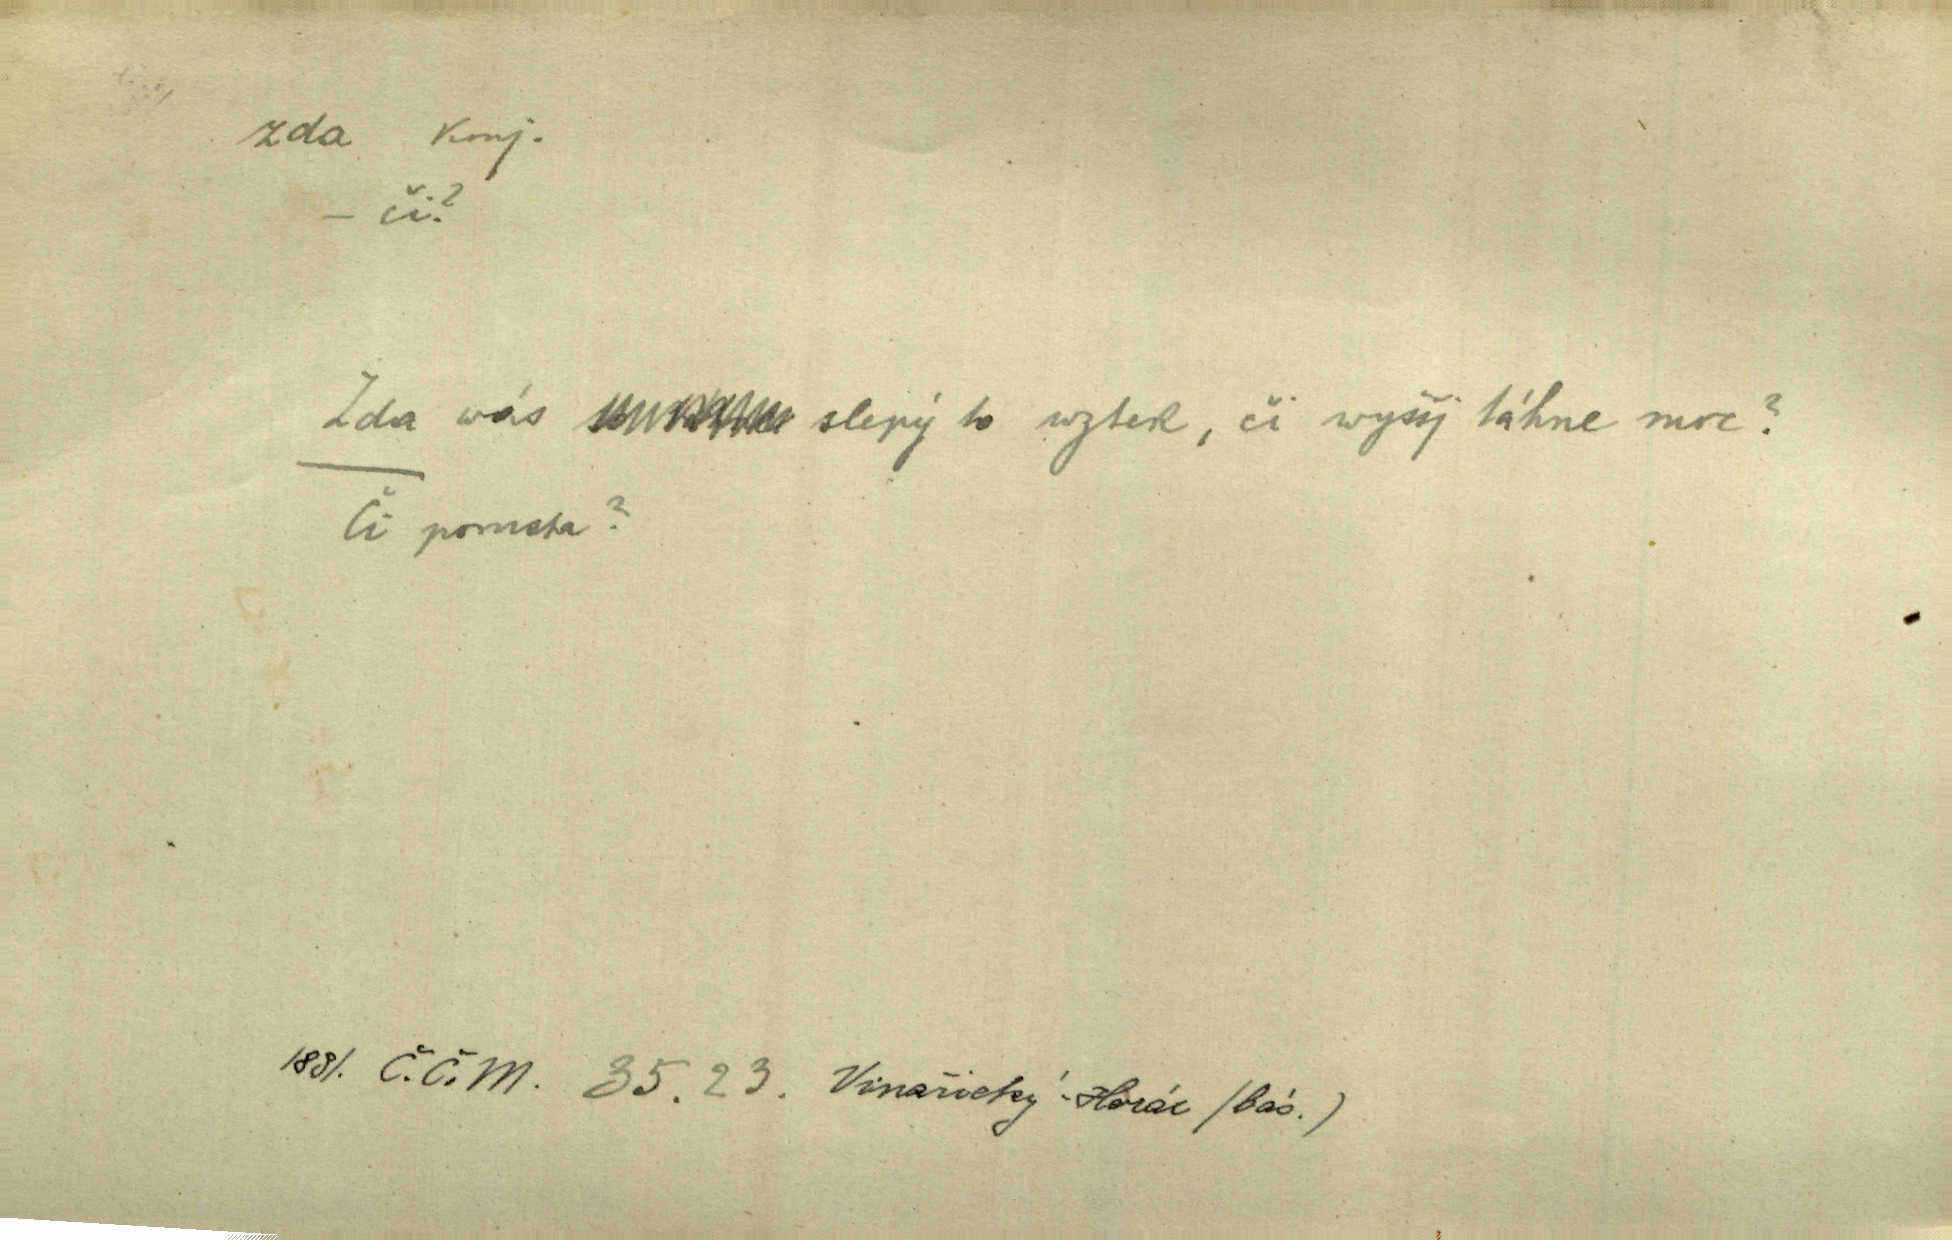 zda konj.
– či?
Zda wás slepý to wztek, či wyšj táhne moc?
Či pomsta?
1831. Č.Č.M. 35.23. Vinařický-Horác (bás.)